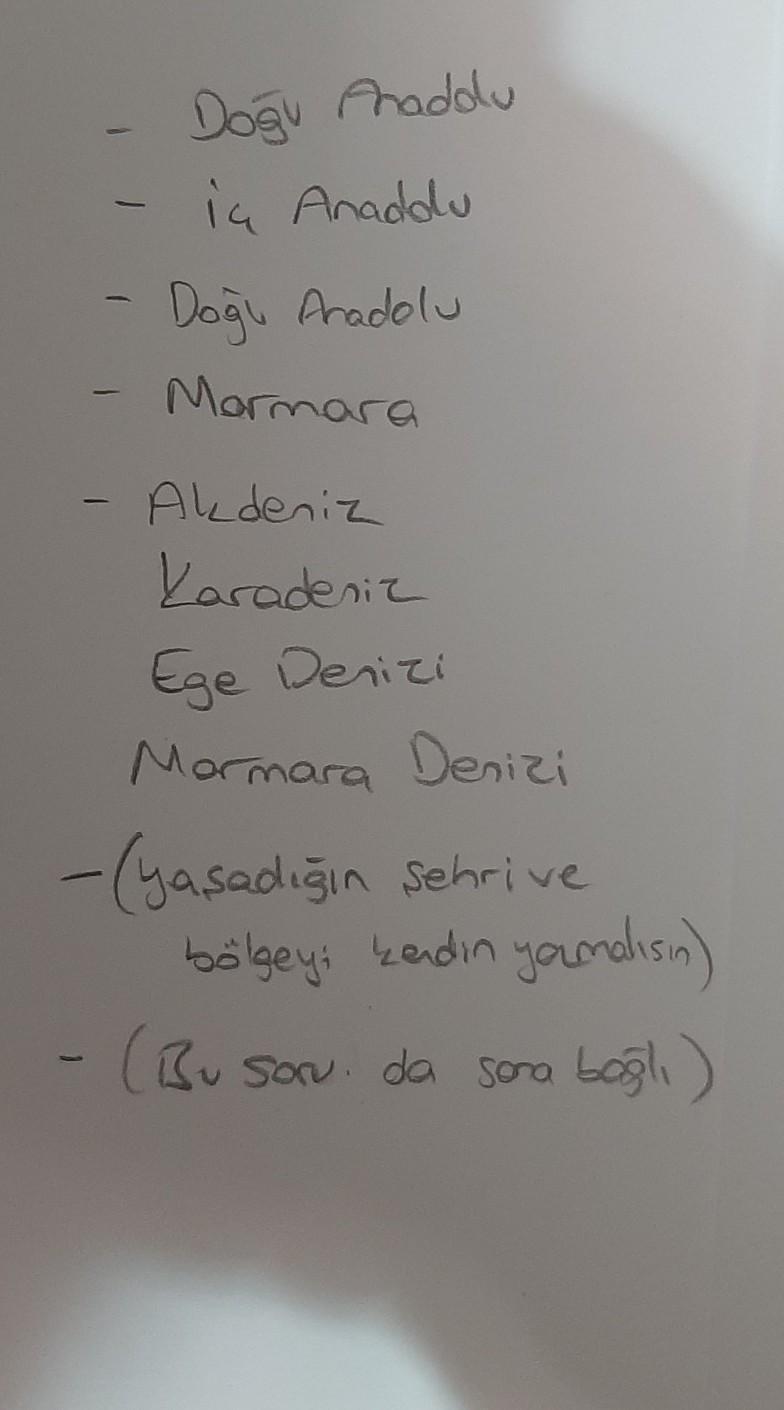 - Doğu Anadolu
- İç Anadolu
- Doğu Anadolu
- Marmara
- Akdeniz
Karadeniz
Ege Denizi
Marmara Denizi
- (yaşadığın şehri ve
bölgeyi kendin yazmalısın)
- (Bu soru da sana bağlı)